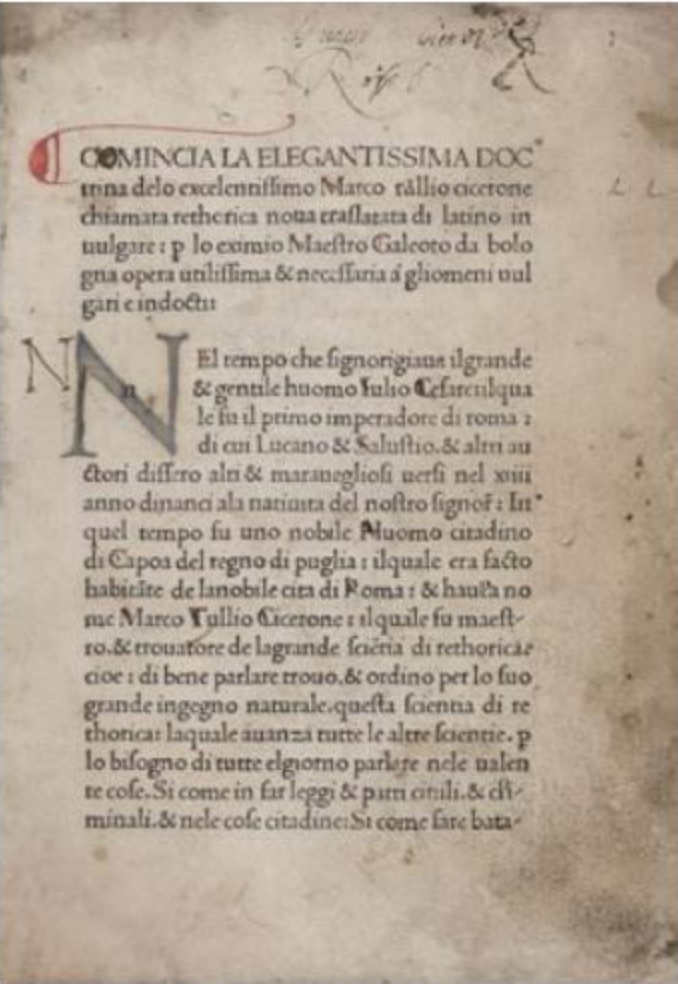 COMINCIA LA ELEGANTISSIMA DOC
trina delo excelentissimo Marco tullio cicerone
chiamata rethorica noua traslatata di latino in
uulgare: p lo eximio Maestro Galeoto da bolo
gna opera utilissima & necessaria a gliomeni uul
gari e indocti:
N N
n El tempo che signorigiaua ilgrande
& gentile huomo Iulio Cesare: ilqua
le fu il primo imperadore di roma:
di cui Lucano & Salustio. & altri au
ctori dissero alti & marauegliosi uersi nel xiiii
anno dinanci ala natiuita del nostro signor̄: In
quel tempo fu uno nobile huomo citadino
di Capoa del regno di puglia: ilquale era facto
habitāte de lanobile cita di Roma: & no
me Marco Tullio Cicerone: ilquale fu maest-
ro. & trouatore de lagrande sciētia di rethorica:
cioe: di bene parlare trouo. & ordino per lo suo
grande ingegno naturale. questa scientia di re
thorica: laquale auanza tutte le altre scientie. p
lo bisogno di tutte elgiorno parlare nele ualen
te cose. Si come in far leggi & piati ciuili. & cri-
minali. & nele cose citadine: Si come fare bata-